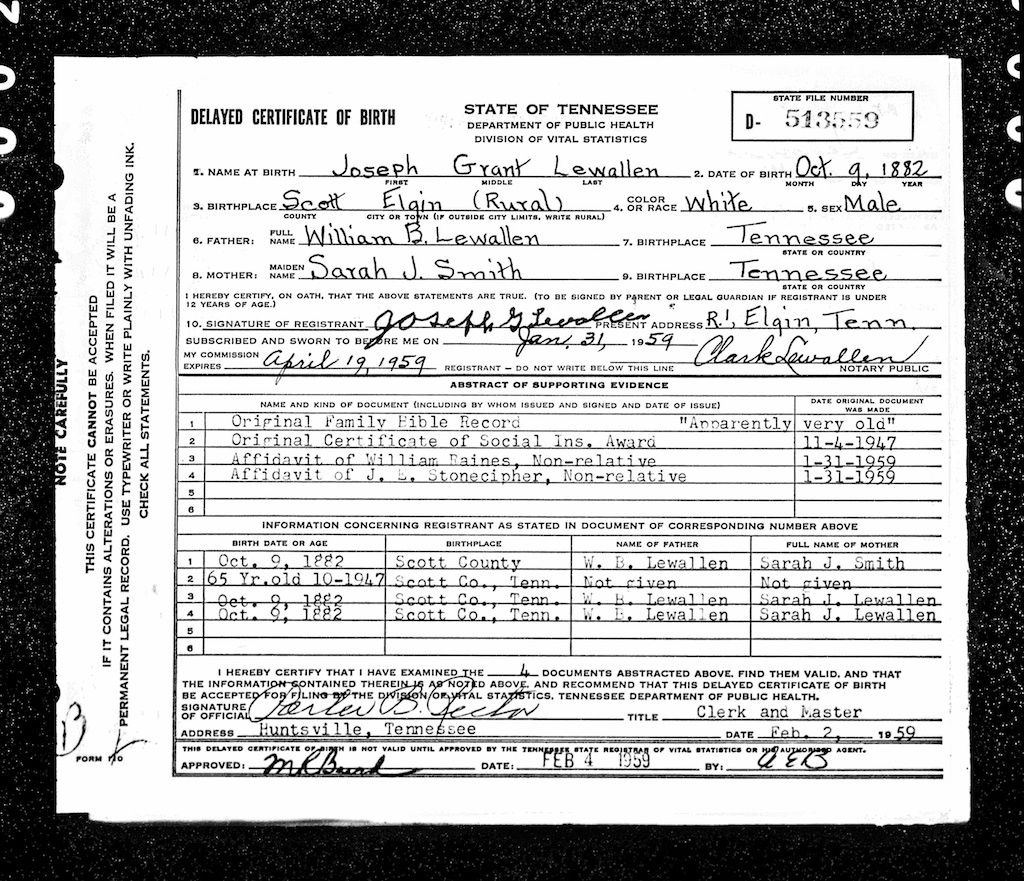 DELAYED CERTIFICATE OF BIRTH
STATE OF TENNESSEE
DEPARTMENT OF PUBLIC HEALTH
DIVISION OF VITAL STATISTICS
STATE FILE NUMBER
D- 513559
1. NAME AT BIRTH Joseph Grant Lewallen 2. DATE OF BIRTH Oct. 9, 1882
FIRST MIDDLE LAST MONTH DAY YEAR
3. BIRTHPLACE Scott Elgin (Rural) 4. COLOR OR RACE White 5. SEX Male
COUNTY CITY OR TOWN (IF OUTSIDE CITY LIMITS, WRITE RURAL)
6. FATHER: FULL NAME William B. Lewallen 7. BIRTHPLACE Tennessee
STATE OR COUNTRY
8. MOTHER: MAIDEN NAME Sarah J. Smith 9. BIRTHPLACE Tennessee
STATE OR COUNTRY
I HEREBY CERTIFY, ON OATH, THAT THE ABOVE STATEMENTS ARE TRUE. (TO BE SIGNED BY PARENT OR LEGAL GUARDIAN IF REGISTRANT IS UNDER
12 YEARS OF AGE.)
10. SIGNATURE OF REGISTRANT Joseph G Lewallen PRESENT ADDRESS R.1, Elgin, Tenn.
SUBSCRIBED AND SWORN TO BEFORE ME ON Jan. 31, 1959 Clark Lewallen
MY COMMISSION EXPIRES April 19, 1959 REGISTRANT – DO NOT WRITE BELOW THIS LINE NOTARY PUBLIC
ABSTRACT OF SUPPORTING EVIDENCE
NAME AND KIND OF DOCUMENT (INCLUDING BY WHOM ISSUED AND SIGNED AND DATE OF ISSUE) DATE ORIGINAL DOCUMENT WAS MADE
1 Original Family Bible Record "Apparently very old"
2 Original Certificate of Social Ins. Award 11-4-1947
3 Affidavit of William Raines, Non-relative 1-31-1959
4 Affidavit of J. E. Stonecipher, Non-relative 1-31-1959
5
6
INFORMATION CONCERNING REGISTRANT AS STATED IN DOCUMENT OF CORRESPONDING NUMBER ABOVE
BIRTH DATE OR AGE BIRTHPLACE NAME OF FATHER FULL NAME OF MOTHER
1 Oct. 9, 1882 Scott County W. B. Lewallen Sarah J. Smith
2 65 Yr.old 10-1947 Scott Co., Tenn. Not given Not given
3 Oct. 9, 1882 Scott Co., Tenn. W. B. Lewallen Sarah J. Lewallen
4 Oct. 9, 1882 Scott Co., Tenn. W. B. Lewallen Sarah J. Lewallen
5
6
I HEREBY CERTIFY THAT I HAVE EXAMINED THE 4 DOCUMENTS ABSTRACTED ABOVE, FIND THEM VALID, AND THAT
THE INFORMATION CONTAINED THEREIN IS AS NOTED ABOVE, AND RECOMMEND THAT THIS DELAYED CERTIFICATE OF BIRTH
BE ACCEPTED FOR FILING BY THE DIVISION OF VITAL STATISTICS, TENNESSEE DEPARTMENT OF PUBLIC HEALTH.
SIGNATURE OF OFFICIAL TITLE Clerk and Master
ADDRESS Huntsville, Tennessee DATE Feb. 2, 1959
THIS DELAYED CERTIFICATE OF BIRTH IS NOT VALID UNTIL APPROVED BY THE TENNESSEE STATE REGISTRAR OF VITAL STATISTICS OR HIS AUTHORISED AGENT.
APPROVED: DATE: FEB 4 1959 BY: AEB
NOTE CAREFULLY
THIS CERTIFICATE CANNOT BE ACCEPTED
IF IT CONTAINS ALTERATIONS OR ERASURES. WHEN FILED IT WILL BE A
PERMANENT LEGAL RECORD. USE TYPEWRITER OR WRITE PLAINLY WITH UNFADING INK.
CHECK ALL STATEMENTS.
B
FORM 110